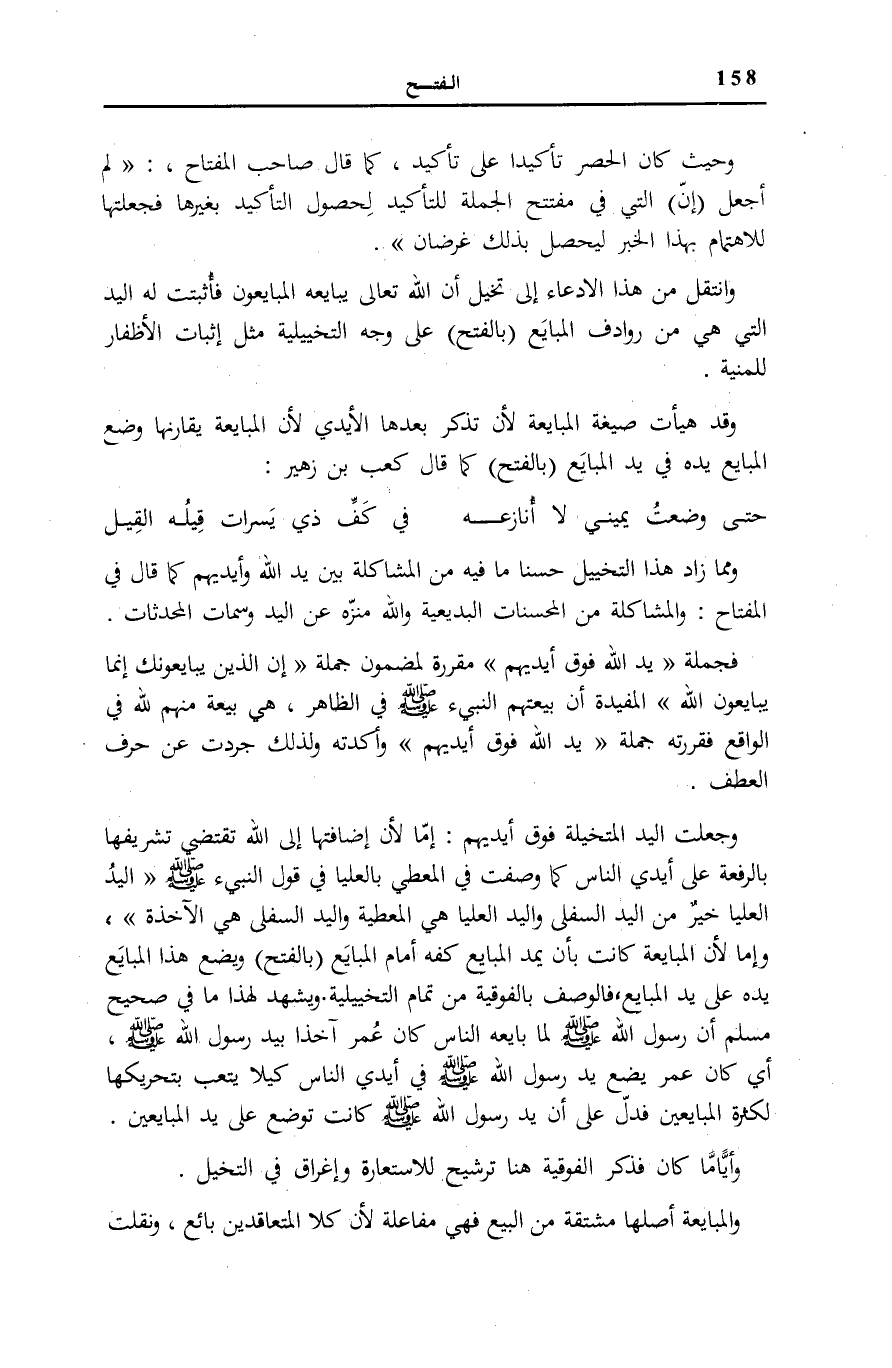 158
الفتـــح
وحيث كان الحصر تأكيدا على تأكيد ، كما قال صاحب المفتاح ، : « لم
أجعل (إنّ) التي في مفتتح الجملة للتأكيد لِحصول التأكيد بغيرها فجعلتها
للاهتمام بهذا الخبر ليحصل بذلك غرضان » .
وانتقل من هذا الادعاء إلى تخيل أن الله تعالى يبايعه المبايعون فأُثبتت له اليد
التي هي من روادف المبايَع (بالفتح) على وجه التخييلية مثل إثبات الأظفار
للمنية .
وقد هيأت صيغة المبايعة لأن تذكر بعدها الأيدي لأن المبايعة يقارنها وضع
المبايع يده في يد المبايَع (بالفتح) كما قال كعب بن زهير :
حتـى وضعتُ يمينـي لا أُنازعـــــه في كَفِّ ذي يَسرات قِيلُـه القِيـل
ومما زاد هذا التخييل حسنا ما فيه من المشاكلة بين يد الله وأيديهم كما قال في
المفتاح : والمشاكلة من المحسنات البديعية والله منزّه عن اليد وسمات المحدثات .
فجملة « يد الله فوق أيديهم » مقررة لمضمون جملة « إن الذين يبايعونك إنما
يبايعون الله » المفيدة أن بيعتهم النبيء ﷺ في الظاهر ، هي بيعة منهم لله في
الواقع فقررته جملة « يد الله فوق أيديهم » وأكدته ولذلك جردت عن حرف
العطف .
وجعلت اليد المتخيلة فوق أيديهم : إمّا لأن إضافتها إلى الله تقتضي تشريفها
بالرفعة على أيدي الناس كما وصفت في المعطي بالعليا في قول النبيء ﷺ « اليدُ
العليا خيرٌ من اليد السفلى واليد العليا هي المعطية واليد السفلى هي الآخذة » ،
وإما لأن المبايعة كانت بأن يمد المبايع كفه أمام المبايَع (بالفتح) ويضع هذا المبايَع
يده على يد المبايع،فالوصف بالفوقية من تمام التخييلية.ويشهد لهذا ما في صحيح
مسلم أن رسول الله ﷺ لما بايعه الناس كان عُمر آخذا بيد رسول الله ﷺ ،
أي كان عمر يضع يد رسول الله ﷺ في أيدي الناس كيلا يتعب بتحريكها
لكثرة المبايعين فدلّ على أن يد رسول الله ﷺ كانت توضع على يد المبايعين .
وأيًّامَّا كان فذكر الفوقية هنا ترشيح للاستعارة وإغراق في التخيل .
والمبايعة أصلها مشتقة من البيع فهي مفاعلة لأن كلا المتعاقدين بائع ، ونقلت